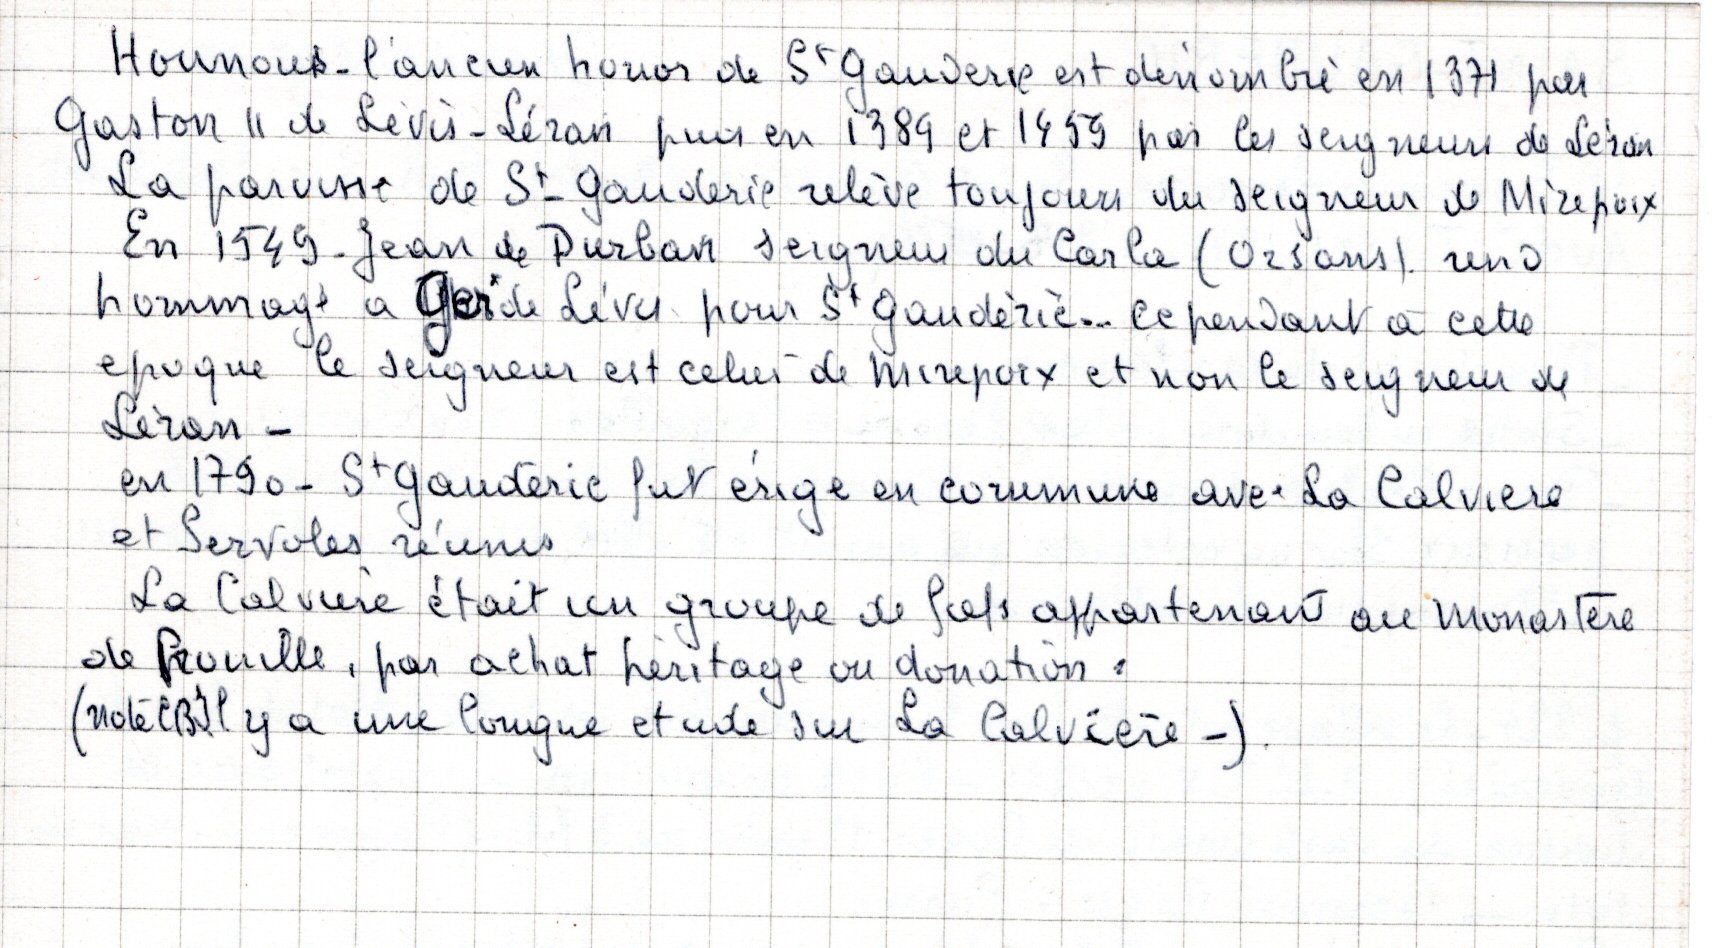 Hounoux - l'ancien honor de St Gauderic est dénombré en 1371 par
Gaston II de Lévis-Léran puis en 1389 et 1459 par les seigneurs de Léran
La paroisse de St-Gauderic relève toujours du seigneur de Mirepoix
En 1549 - Jean de Durban seigneur du Carla (Orsans). rend
hommage a de Lévis pour St Gaudéric... cependant à cette
epoque le seigneur est celui de Mirepoix et non le seigneur de
Léran -
en 1790 - St Gauderic fut érigé en commune avec La Calviere
et Servoles réunis
La Calvière était un groupe de fiefs appartenant au Monastère
de Prouille, par achat héritage ou donation.
(note CB) Il y a une longue etude sur La Calvière -).